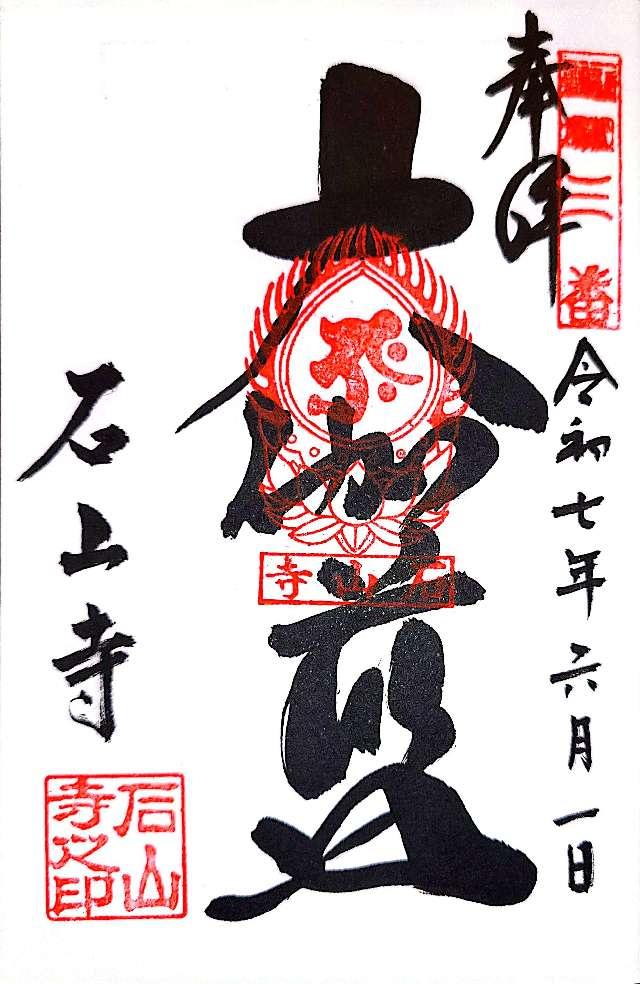 奉拝
西国十三番
令和七年六月一日
大伽藍
石山寺
石山寺
石山寺之印